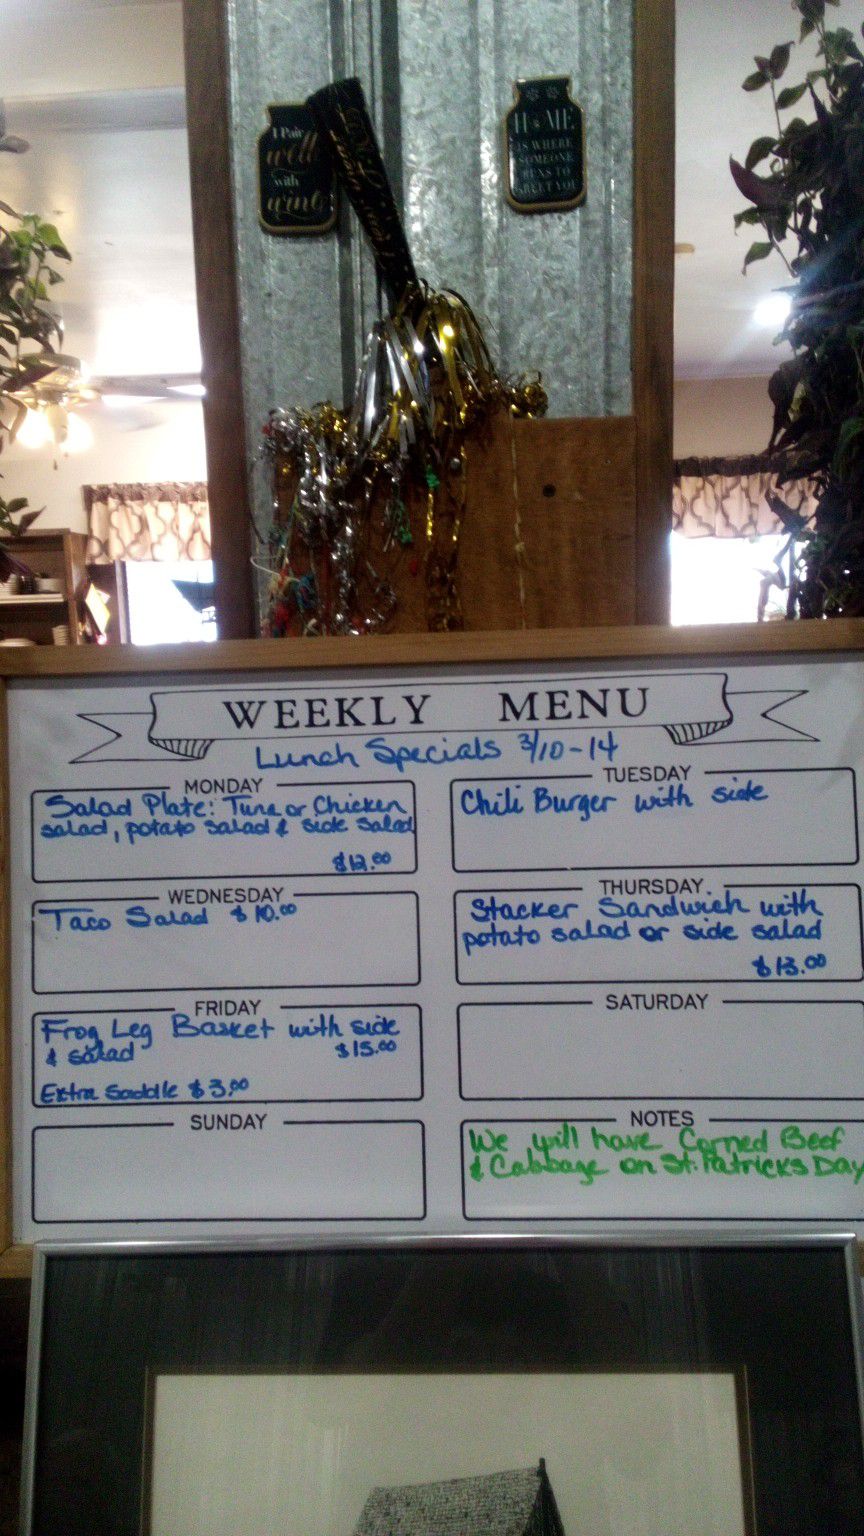 I Pair
well
with
wine
H ME
IS WHERE
SOMEONE
RUNS TO
GREET YOU
WEEKLY MENU
Lunch Specials 3/10-14
MONDAY
Salad Plate: Tuna or Chicken
salad, potato salad & side salad
$12.00
TUESDAY
Chili Burger with side
WEDNESDAY
Taco Salad $10.00
THURSDAY
Stacker Sandwich with
potato salad or side salad
$13.00
FRIDAY
Frog Leg Basket with side
& salad $15.00
Extra Saddle $3.00
SATURDAY
SUNDAY
NOTES
We will have Corned Beef
& Cabbage on St. Patricks Day